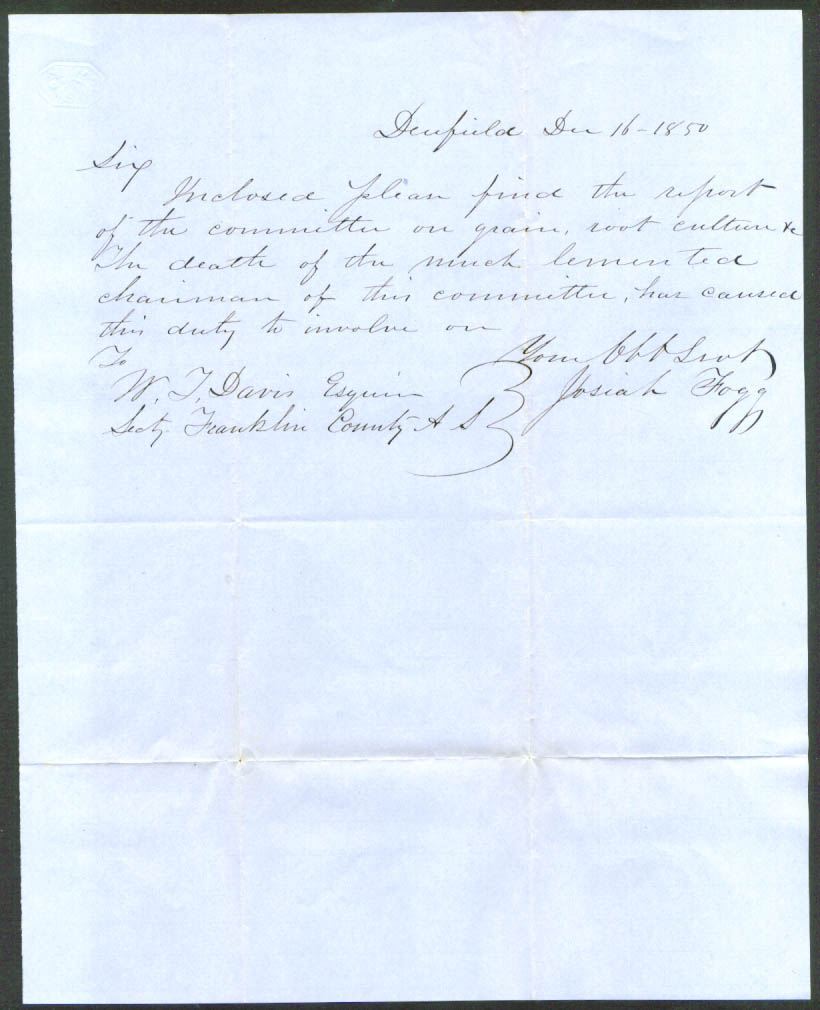 Deerfield Dec 16 - 1850
Sir
Inclosed please find the report
of the committee on grain, root culture &c
The death of the much lemented
chairman of this committee, has caused
this duty to involve on
Your Obt Servt
Josiah Fogg
To
W. T. Davis Esquire
Secty. Franklin County A S